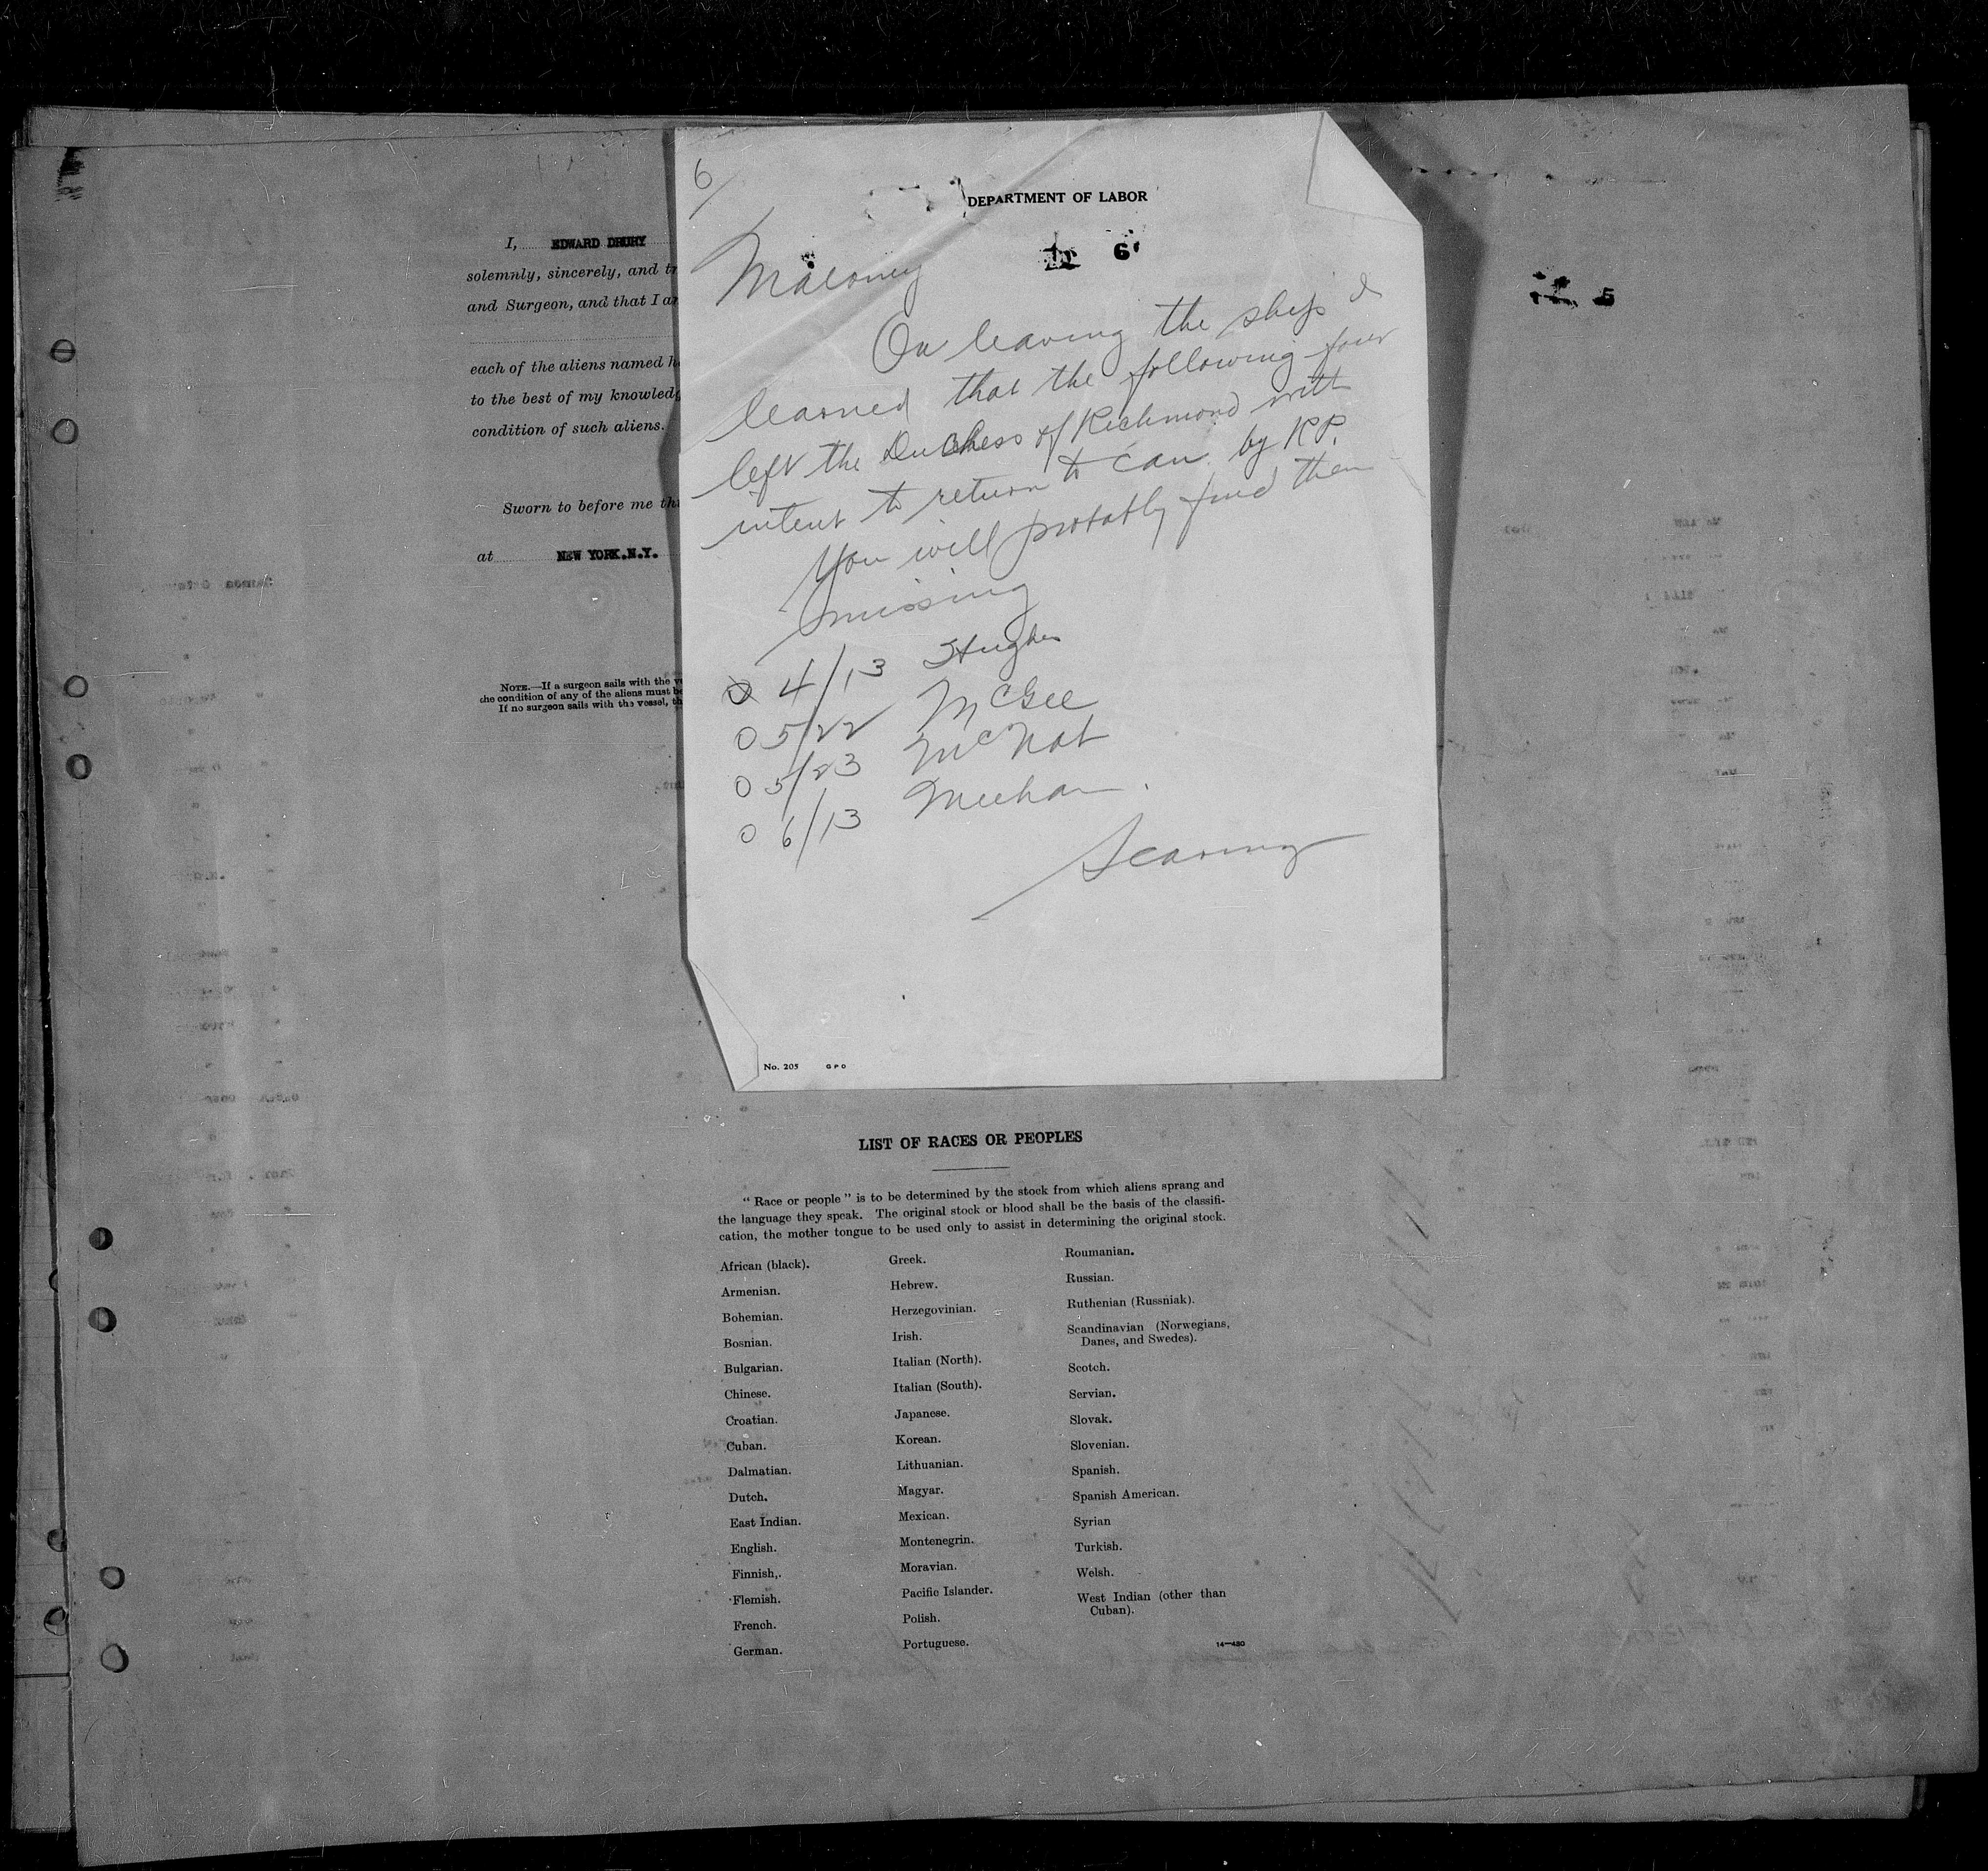 I, EDWARD DRURY
solemnly, sincerely, and tr
and Surgeon, and that I ar
each of the aliens named h
to the best of my knowledg
condition of such aliens.
Sworn to before me thi
at NEW YORK.N.Y.
NOTE.—If a surgeon sails with the v
the condition of any of the aliens must b
If no surgeon sails with the vessel, th
6/
DEPARTMENT OF LABOR
6
Maloney
On leaving the ship I
learned that the following four
left the Duchess of Richmond with
intent to return to Can. by RR.
You will probably find them
missing
0 4/13 Hughes
0 5/22 McGee
0 5/23 McNab
0 6/13 Meehan.
No. 205 GPO
5
LIST OF RACES OR PEOPLES
“ Race or people ” is to be determined by the stock from which aliens sprang and
the language they speak. The original stock or blood shall be the basis of the classifi-
cation, the mother tongue to be used only to assist in determining the original stock.
African (black).
Armenian.
Bohemian.
Bosnian.
Bulgarian.
Chinese.
Croatian.
Cuban.
Dalmatian.
Dutch.
East Indian.
English.
Finnish,.
Flemish.
French.
German.
Greek.
Hebrew.
Herzegovinian.
Irish.
Italian (North).
Italian (South).
Japanese.
Korean.
Lithuanian.
Magyar.
Mexican.
Montenegrin.
Moravian.
Pacific Islander.
Polish.
Portuguese.
Roumanian.
Russian.
Ruthenian (Russniak).
Scandinavian (Norwegians,
Danes, and Swedes).
Scotch.
Servian.
Slovak.
Slovenian.
Spanish.
Spanish American.
Syrian
Turkish.
Welsh.
West Indian (other than
Cuban).
14—430